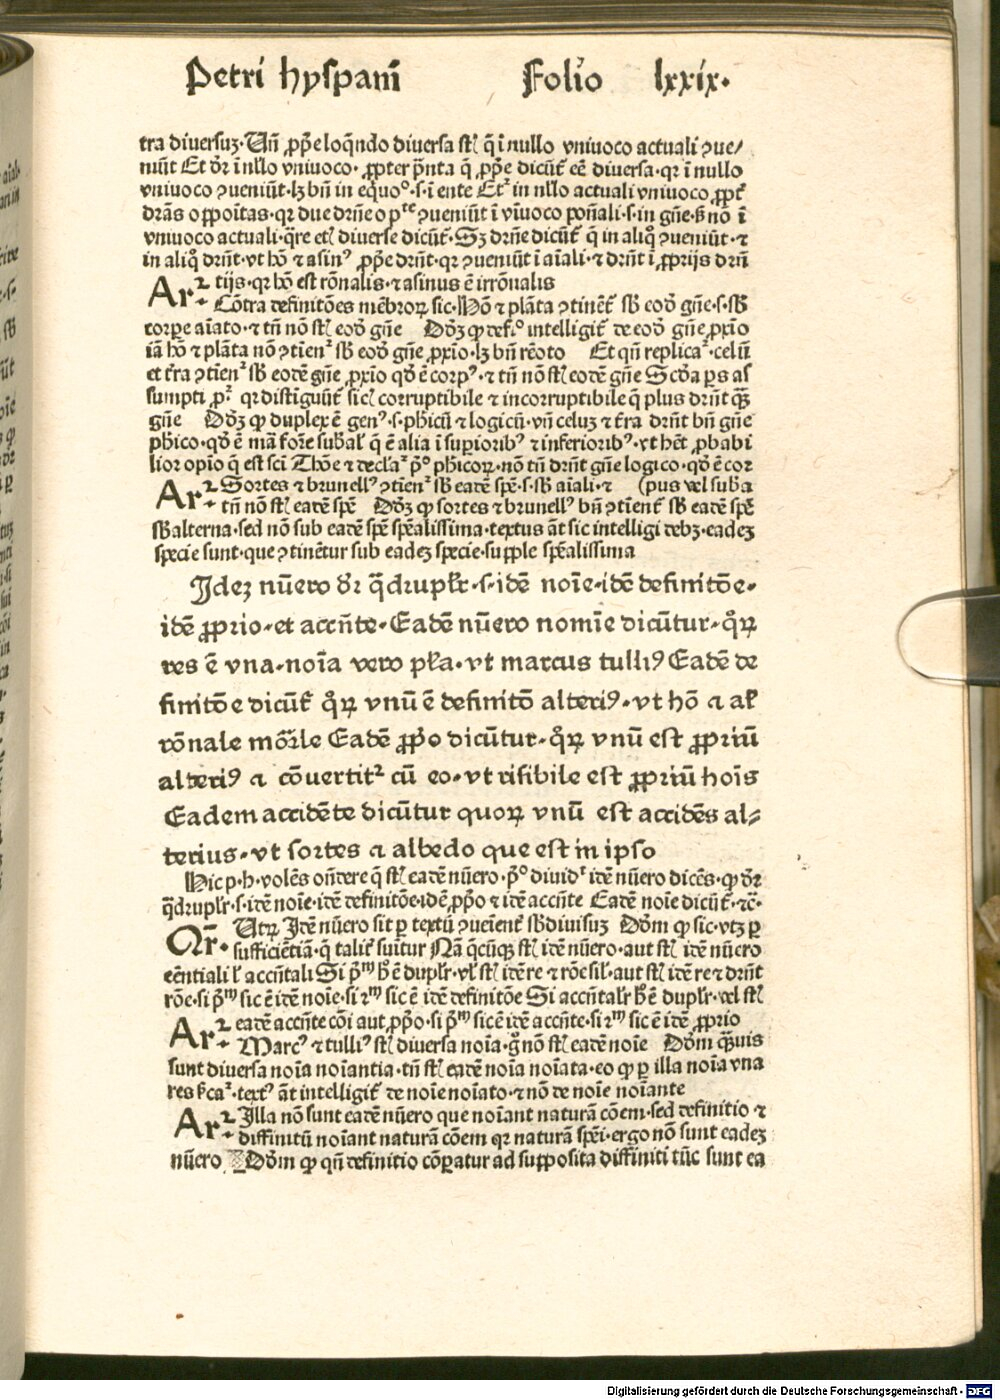 Petri hyspani̅ Folio lxxix.
tra diuersuꝫ. Vn̅ ꝓp̅e loqn̅do diuersa st̅ q̅ i̅ nullo vniuoco actuali ꝯue/
niu̅t Et dr̅ i̅ nllo̅ vniuoco. ꝓpter p̅nta q̅ ꝓp̅e dicu̅t ee̅ diuersa. qꝛ i̅ nullo
vniuoco ꝯueniu̅t. lꝫ bn̅ in equoᵒ. s. i̅ ente Etꝛ in nllo̅ actuali vniuoco ꝓpt̅
dr̅as oppo̅itas. qꝛ due drn̅e opᵗᵉ ꝯueniu̅t i̅ vi̅uoco pon̅ali. s. in gn̅e. sꝫ no̅ i̅
vniuoco actuali. qr̅e et̅ diuerse dicu̅t. Sꝫ drn̅e dicu̅t q̅ in aliq̅ ꝯueniu̅t. ⁊
in aliq̅ drn̅t. vt ho̅ ⁊ asinꝰ ꝓp̅e drn̅t. qꝛ ꝯueniu̅t i̅ ai̅ali. ⁊ drn̅t i̅ ꝓprijs drn̅
tijs. qꝛ ho̅ est ro̅nalis. ⁊ asinus e̅ irro̅nalis
Ar̅ꝛ Co̅tra definito̅es me̅broꝝ sic. Ho̅ ⁊ pla̅ta ꝯtine̅t sb̅ eod̅ gn̅e. s. sb̅
corpe ai̅ato. ⁊ tn̅ no̅ st̅ eod̅ gn̅e Do̅ꝫ ꝙ defiᵒ intelligit̅ de eod̅ gn̅e ꝓxio̅
ia̅ ho̅ ⁊ pla̅ta no̅ ꝯtienꝛ sb̅ eod̅ gn̅e ꝓxio̅. lꝫ bn̅ re̅oto Et qn̅ replicaꝛ. celu̅
et tr̅a ꝯtienꝛ sb̅ eode̅ gn̅e ꝓxio̅ qd̅ e̅ corpꝰ. ⁊ tn̅ no̅ st̅ eode̅ gn̅e Scd̅a ps̅ as
sumpti pꝛ qꝛ disti̅guu̅t sic̅ corruptibile ⁊ incorruptibile q̅ plus drn̅t qꝫ̅
gn̅e Do̅ꝫ ꝙ duplex e̅ genꝰ. s. phicu̅ ⁊ logicu̅. vn̅ celuꝫ ⁊ tr̅a drn̅t bn̅ gn̅e
phico. qd̅ e̅ ma̅ for̅e sub̅al̅ q̅ e̅ alia i̅ supiorib̅ꝰ ⁊ inferiorib̅ꝰ. vt he̅t ꝓbabi
lior opio̅ q̅ est sci̅ Tho̅e ⁊ declaꝛ pᵒ phicoꝝ. no̅ tn̅ drn̅t gn̅e logico. qd̅ e̅ cor
Ar̅ꝛ Sortes ⁊ brunellꝰ ꝯtienꝛ sb̅ eade̅ spe̅. s. sb̅ ai̅ali. ⁊ (pus vel sub̅a
tn̅ no̅ st̅ eade̅ spe̅ Do̅ꝫ ꝙ sortes ⁊ brunellꝰ bn̅ ꝯtient̅ sb̅ eade̅ spe̅
sb̅alterna. sed no̅ sub eade̅ spe̅ spe̅alissima. textus a̅t sic intelligi debꝫ. eadeꝫ
specie sunt. que ꝯtine̅tur sub eadeꝫ specie. supple spe̅alissima
Ideꝫ nu̅ero dr̅ q̅druplr̅. s. ide̅ noi̅e. ide̅ definito̅e.
ide̅ ꝓprio. et accn̅te. Eade̅ nu̅ero nomi̅e dicu̅tur. qr̅ꝝ
res e̅ vna. noi̅a vero pl̅a. vt marcus tulliꝰ Eade̅ de
finito̅e dicu̅t̅ qr̅ꝝ vnu̅ e̅ definito̅ alteriꝰ. vt ho̅ ⁊ al̅
ro̅nale mo̅r̅le Eade̅ ꝓp̅o dicu̅tur. qr̅ꝝ vnu̅ est ꝓpriu̅
alteriꝰ ⁊ co̅uertitꝛ cu̅ eo. vt risibile est ꝓpriu̅ hoi̅s
Eadem accide̅te dicu̅tur quoꝝ vnu̅ est accide̅s al⸗
terius. vt sortes ⁊ albedo que est in ipso
Hic p. h. vole̅s on̅dere q̅ st̅ eade̅ nu̅ero. pᵒ diuidꝛ ide̅ nu̅ero dice̅s. ꝙ dr̅
q̅druplr̅. s. ide̅ noi̅e. ide̅ definito̅e. ide̅ ꝓp̅o ⁊ ide̅ accn̅te Eade̅ noi̅e dicu̅t̅. ⁊c̅.
Qr̅. Vtꝝ Ide̅ nu̅ero sit ꝑ textu̅ ꝯuei̅ent̅ sb̅diuisuꝫ Do̅m ꝙ sic. vtꝫ ꝑ
sufficie̅tia̅. q̅ talit̅ sui̅tur Na̅ q̅cu̅qꝫ st̅ ide̅ nu̅ero. aut st̅ ide̅ nu̅ero
ee̅ntiali l̅ accn̅tali Si p̅ᵐ h̅ e̅ duplr̅. vl̅ st̅ ide̅ re ⁊ ro̅e sil̅. aut st̅ ide̅ re ⁊ drn̅t
ro̅e. si p̅ᵐ sic e̅ ide̅ noi̅e. si 2ᵐ sic e̅ ide̅ definito̅e Si accn̅talr̅ h̅ e̅ duplr̅. vel st̅
eade̅ accn̅te co̅i aut ꝓp̅o. si p̅ᵐ sic e̅ ide̅ accn̅te. si 2ᵐ sic e̅ ide̅ ꝓprio
Ar̅ꝛ Marcꝰ ⁊ tulliꝰ st̅ diuersa noi̅a. g̅ no̅ st̅ eade̅ noi̅e Do̅m qꝫ̅uis
sunt diuersa noi̅a noi̅antia. tn̅ st̅ eade̅ noi̅a noi̅ata. eo ꝙ ꝑ illa noi̅a vna
res sc̅aꝛ. textꝰ a̅t intelligit̅ de noi̅e noi̅ato. ⁊ no̅ de noi̅e noi̅ante
Ar̅ꝛ Illa no̅ sunt eade̅ nu̅ero que noi̅ant natura̅ co̅em. sed definitio ⁊
diffinitu̅ noi̅ant natura̅ co̅em qꝛ natura̅ spe̅i. ergo no̅ sunt eadeꝫ
nu̅ero Do̅m ꝙ qn̅ definitio co̅paratur ad supposita diffiniti tu̅c sunt ea
Digitalisierung gefördert durch die Deutsche Forschungsgemeinschaft - DFG